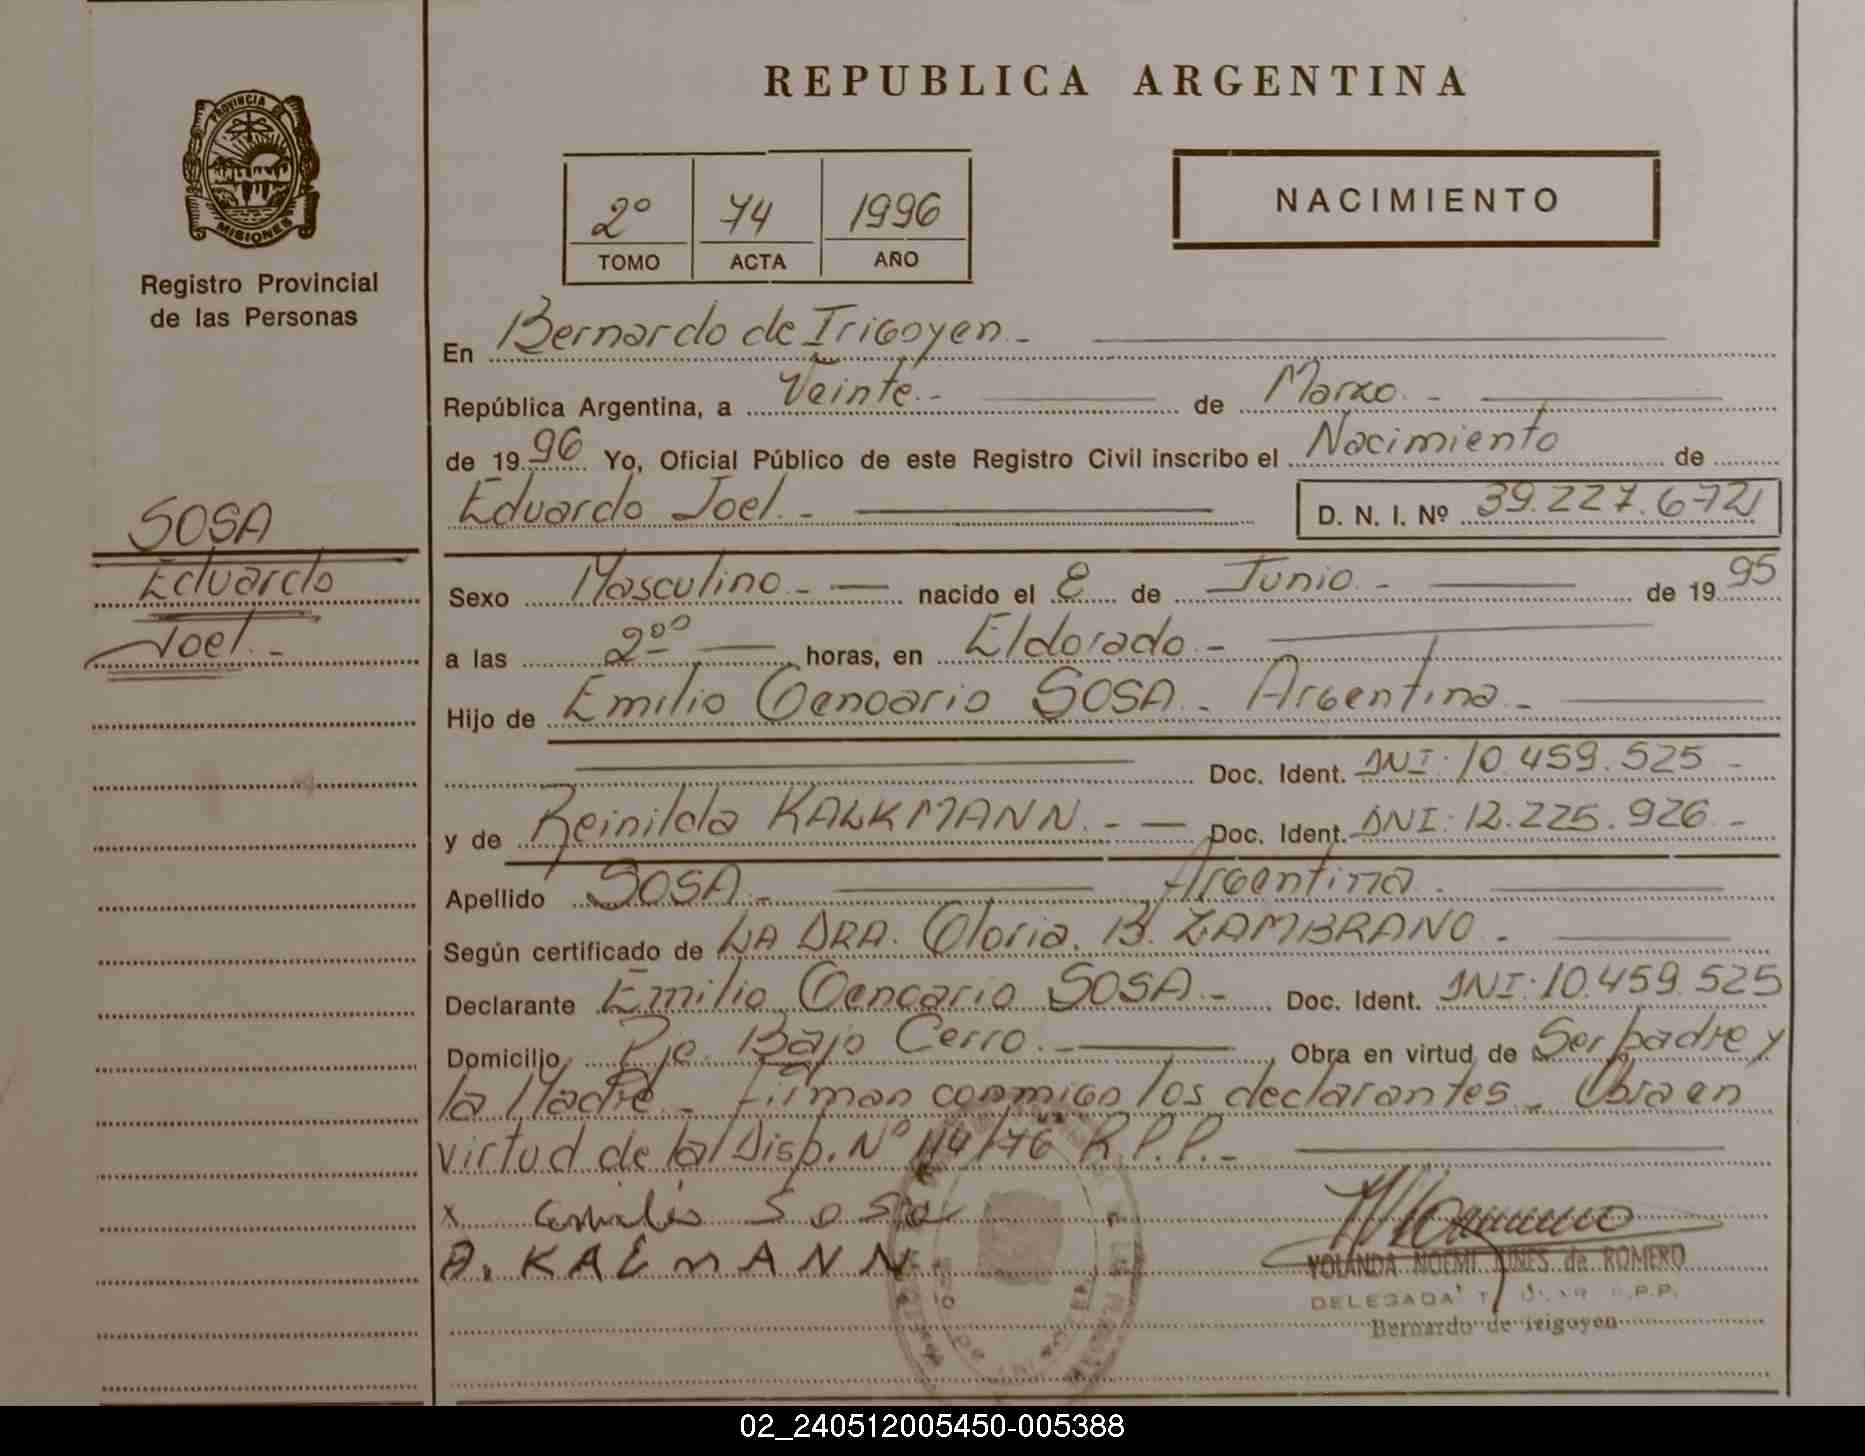 REPUBLICA ARGENTINA
PROVINCIA DE
MISIONES
Registro Provincial
de las Personas
NACIMIENTO
2º 74 1996
TOMO ACTA AÑO
En Bernardo de Irigoyen.-
República Argentina, a Veinte.- de Marzo.-
de 1996 Yo, Oficial Público de este Registro Civil inscribo el Nacimiento de
Eduardo Joel.- D. N. I. Nº 39.227.672
SOSA
Eduardo
Joel.-
Sexo Masculino.- nacido el 8 de Junio.- de 1995
a las 2⁰⁰ horas, en Eldorado.-
Hijo de Emilio Genoario SOSA.- Argentina.-
Doc. Ident. DNI: 10.459.525-
y de Reinilda KALKMANN.- Doc. Ident. DNI: 12.225.926.-
Apellido SOSA.- Argentina.
Según certificado de LA DRA. Gloria. B. ZAMBRANO.-
Declarante Emilio Genoario SOSA.- Doc. Ident. DNI: 10.459.525
Domicilio Pje. Bajo Cerro.- Obra en virtud de Ser padre y
la Madre.- Firman conmigo los declarantes.- Obra en
virtud de la Disp. Nº 114/76 R.P.P.-
x Emilio Sosa
YOLANDA NOEMI de ROMERO
DELEGADA
Bernardo de Irigoyen
02_240512005450-005388